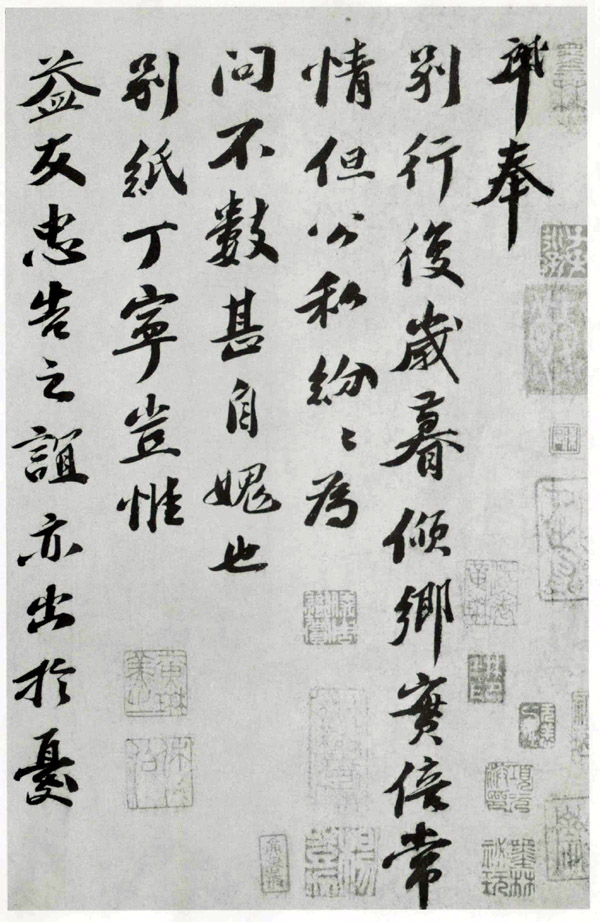 奉
別行後歲暮傾鄉實倍常
情但公私紛〻為
問不數甚自媿也
別紙丁寧豈惟
益友忠告之誼亦出於憂
墨林祕玩